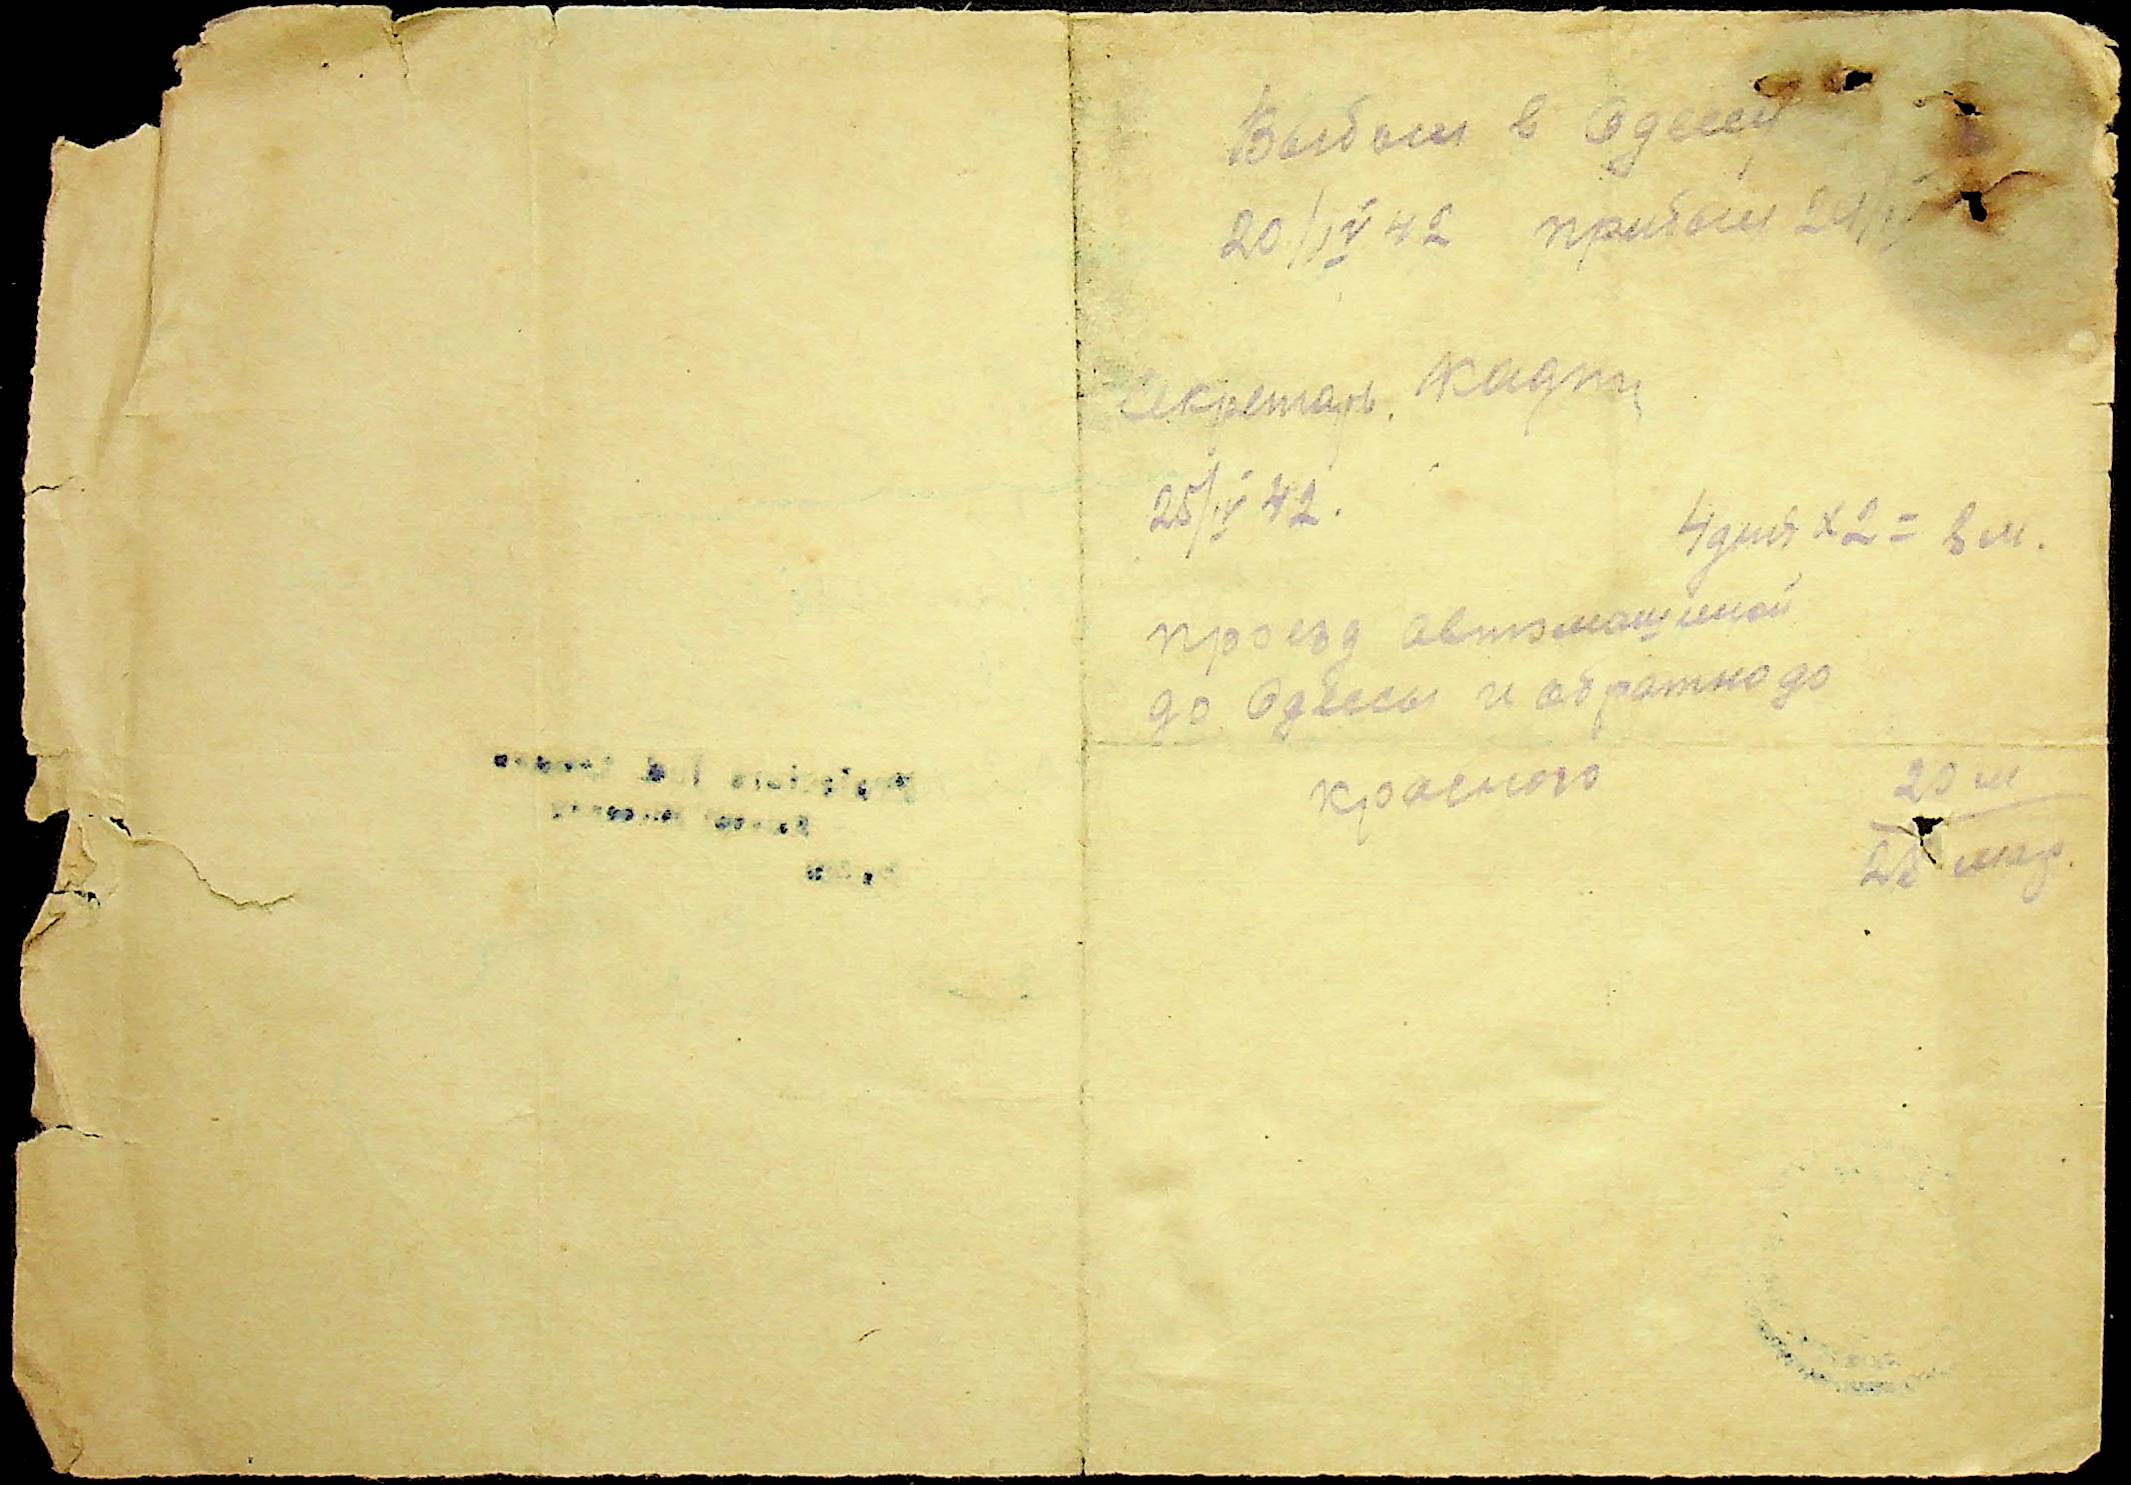 Выбыл в Одессу
20/IV 42 прибыл 24/IV
Секретарь
25/IV 42.
4 дня х 2 = 8 м.
проезд автомашиной
до Одессы и обратно до
Красного
20 м
28 мар.